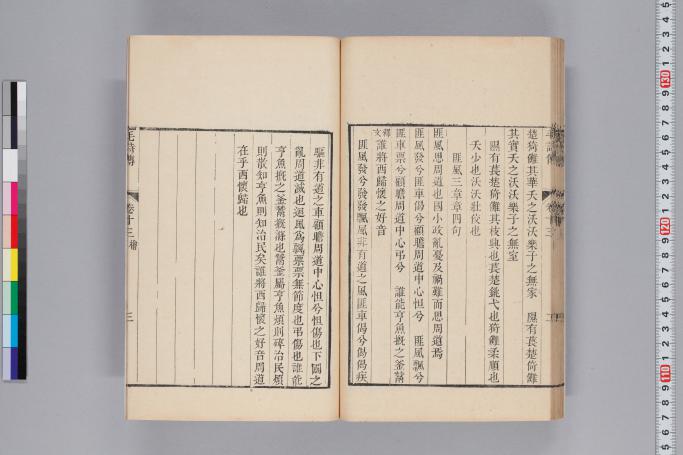 楚猗儺其華夭之沃沃樂子之無家　隰有萇楚猗儺
其實夭之沃沃樂子之無室
隰有萇楚猗儺其枝興也萇楚銚弋也猗儺柔順也
夭少也沃沃壯佼也
匪風三章章四句
匪風思周道也國小政亂憂及禍難而思周道焉
匪風發兮匪車偈兮顧瞻周道中心怛兮　匪風飄兮
匪車票兮顧瞻周道中心弔兮　誰能亨魚溉之釜鬵
釋文誰將西歸懷之好音
匪風發兮發發飄風非有道之風匪車偈兮偈偈疾
驅非有道之車顧瞻周道中心怛兮怛傷也下國之
亂周道滅也迴風爲飄票票無節度也弔傷也誰能
亨魚溉之釜鬵溉滌也鬵釜屬亨魚煩則碎治民煩
則散知亨魚則知治民矣誰將西歸懷之好音周道
在乎西懷歸也
毛詩傳
卷十三
檜
三